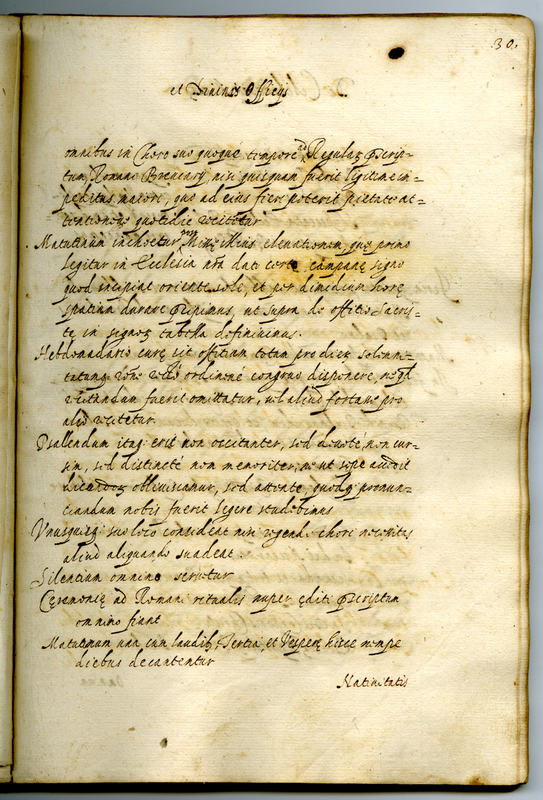 30.
et Diuinis Officijs
omnibus in Choro suo quoque tempore, Regulaę p̱scrip-
tum, Romani Breuiarij, nisi quisquam fuerit legitime im=
peditus maiori, quo ad eius fieri poterit pietate at=
tentioneq; quotidie recitetur
Matutinum inchoetur Missę illius eleuationem, quę primo
legitur in Ecclesia nrã dato certo campanę signo
quod incipiat oriente sole, et per dimidium horę
spatium durare p̱cipimus, ut supra de offitio Sacris=
tę in signoȝ tabella definiuimus.
Hebdomadario curę sit offitium totum pro dieȝ solemn=
tatumq; ordinone congrue disponere, ne qd
recitandum fuerit omittatur, uel aliud fortasse pro
alio recitetur.
Psallendum itaq; erit non oscitanter, sed deuotè, non cur=
sim, sed distinctè non memoriter, ne ut sępe accidit
dicendoȝ obliuiscamur, sed attente, quodq; pronun=
ciandum nobis fuerit legere studebimus
Vnusquisq; suo loco consideat nisi regendi chori necessitas
aliud aliquando suadeat.
Silentium omnino seruetur
Cęremonię ad Romani ritualis nuper ęditi p̱scriptum
omnino fiant
Matutinum una cum laudib; Tertia, et Vesperę hisce nempe
diebus decantentur
Natiuitatis